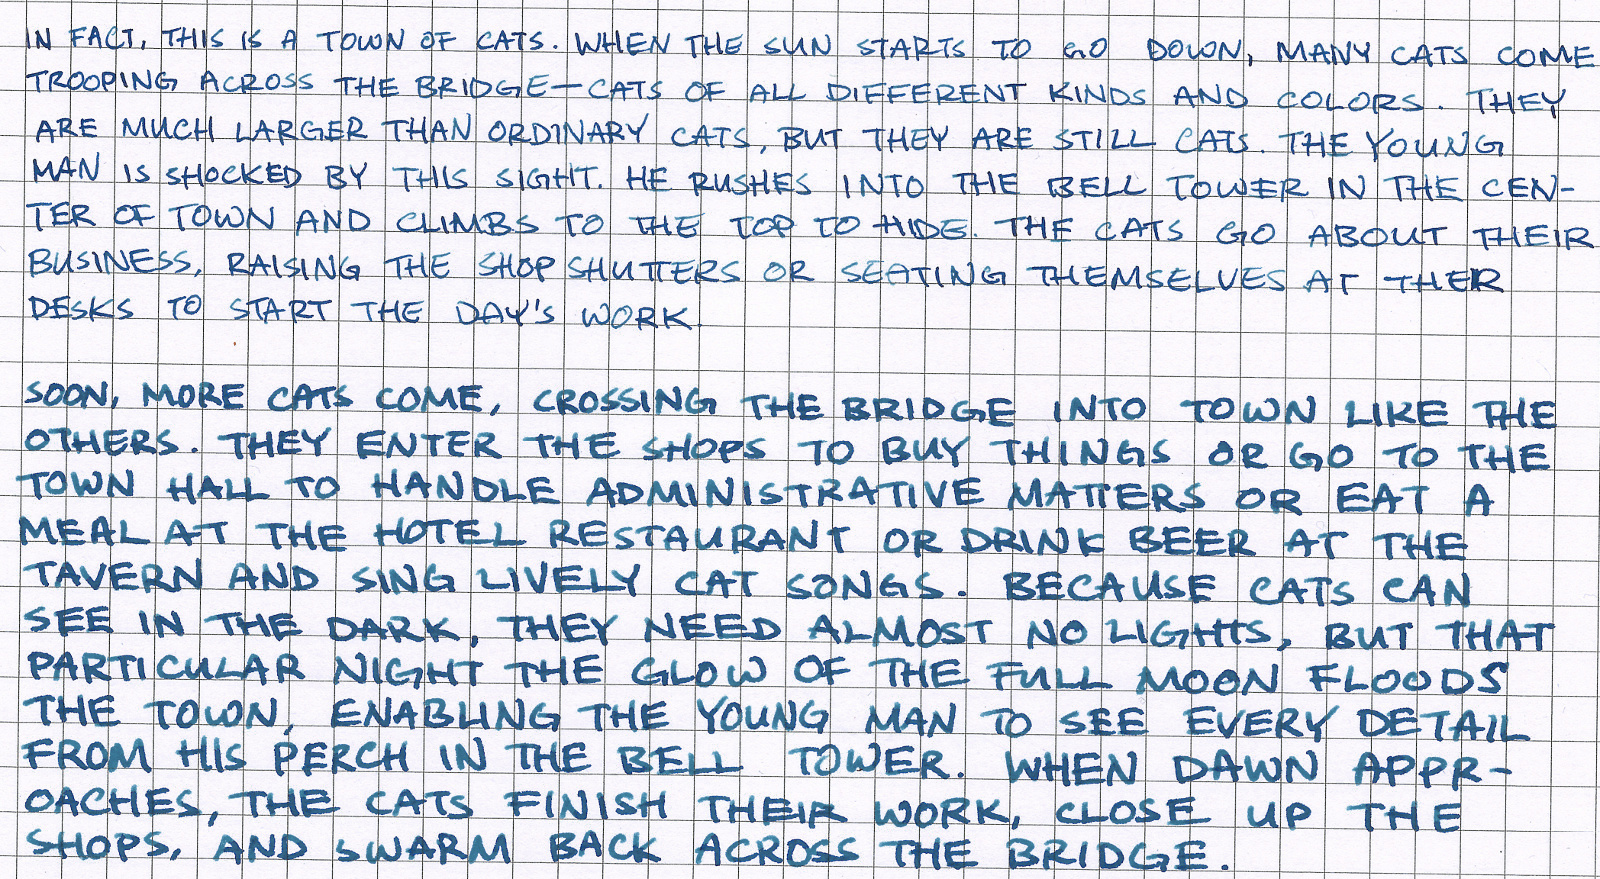 IN FACT, THIS IS A TOWN OF CATS. WHEN THE SUN STARTS TO GO DOWN, MANY CATS COME
TROOPING ACROSS THE BRIDGE—CATS OF ALL DIFFERENT KINDS AND COLORS. THEY
ARE MUCH LARGER THAN ORDINARY CATS, BUT THEY ARE STILL CATS. THE YOUNG
MAN IS SHOCKED BY THIS SIGHT. HE RUSHES INTO THE BELL TOWER IN THE CEN-
TER OF TOWN AND CLIMBS TO THE TOP TO HIDE. THE CATS GO ABOUT THEIR
BUSINESS, RAISING THE SHOP SHUTTERS OR SEATING THEMSELVES AT THER
DESKS TO START THE DAY'S WORK.
SOON, MORE CATS COME, CROSSING THE BRIDGE INTO TOWN LIKE THE
OTHERS. THEY ENTER THE SHOPS TO BUY THINGS OR GO TO THE
TOWN HALL TO HANDLE ADMINISTRATIVE MATTERS OR EAT A
MEAL AT THE HOTEL RESTAURANT OR DRINK BEER AT THE
TAVERN AND SING LIVELY CAT SONGS. BECAUSE CATS CAN
SEE IN THE DARK, THEY NEED ALMOST NO LIGHTS, BUT THAT
PARTICULAR NIGHT THE GLOW OF THE FULL MOON FLOODS
THE TOWN, ENABLING THE YOUNG MAN TO SEE EVERY DETAIL
FROM HIS PERCH IN THE BELL TOWER. WHEN DAWN APPR-
OACHES, THE CATS FINISH THEIR WORK, CLOSE UP THE
SHOPS, AND SWARM BACK ACROSS THE BRIDGE.